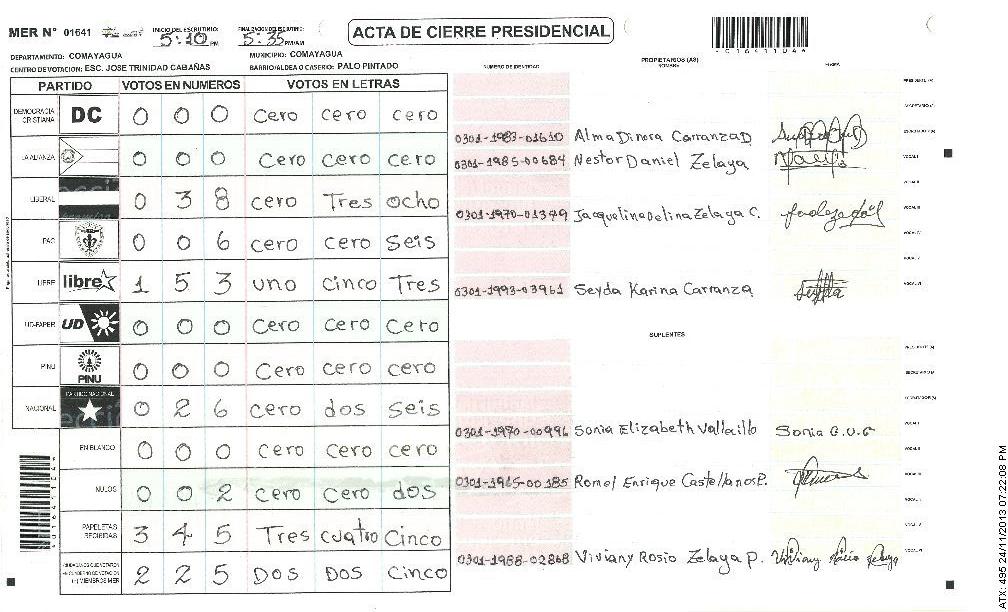 MER Nº 01641 INICIO DEL ESCRUTINIO: 5:10 PM FINALIZACION ESCRUTINIO: 5:35 PM/AM
ACTA DE CIERRE PRESIDENCIAL
DEPARTAMENTO: COMAYAGUA MUNICIPIO: COMAYAGUA
CENTRO DE VOTACION: ESC. JOSE TRINIDAD CABAÑAS BARRIO/ALDEA O CASERIO: PALO PINTADO
NUMERO DE IDENTIDAD PROPIETARIOS (AS) NOMBRE FIRMA
PARTIDO VOTOS EN NUMEROS VOTOS EN LETRAS
DEMOCRACIA CRISTIANA DC 0 0 0 cero cero cero
LA ALIANZA 0 0 0 cero cero cero
LIBERAL 0 3 8 cero Tres ocho
PAC 0 0 6 cero cero seis
LIBRE libre 1 5 3 uno cinco Tres
UD-FAPER UD 0 0 0 cero cero cero
PINU PINU 0 0 0 cero cero cero
NACIONAL PARTIDO NACIONAL 0 2 6 cero dos seis
EN BLANCO 0 0 0 cero cero cero
NULOS 0 0 2 cero cero dos
PAPELETAS RECIBIDAS 3 4 5 Tres cuatro cinco
2 2 5 Dos Dos Cinco
0301-1983-01610 Alma Dinora Carranza D
0301-1985-00684 Nestor Daniel Zelaya
0301-1970-01349 Jacquelina Delina Zelaya C.
0301-1993-03961 Seyda Karina Carranza
SUPLENTES
0301-1970-00996 Sonia Elizabeth Vallecillo Sonia
0301-1965-00185 Romel Enrique Castellanos P.
0301-1988-02868 Viviany Rosio Zelaya P. Viviany Rosio Zelaya
ATX: 495 24/11/2013 07:22:08 PM